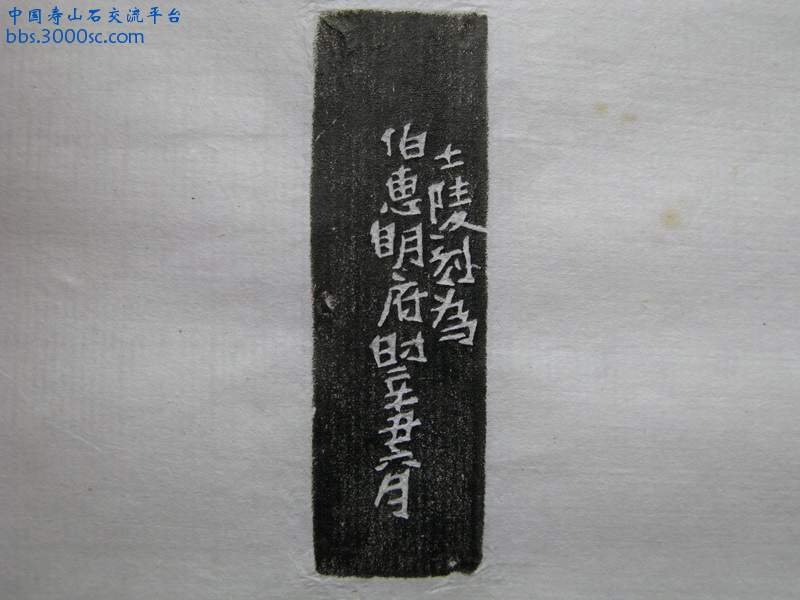 中国寿山石交流平台
bbs.3000sc.com
士陵刻为
伯惠明府时辛丑六月